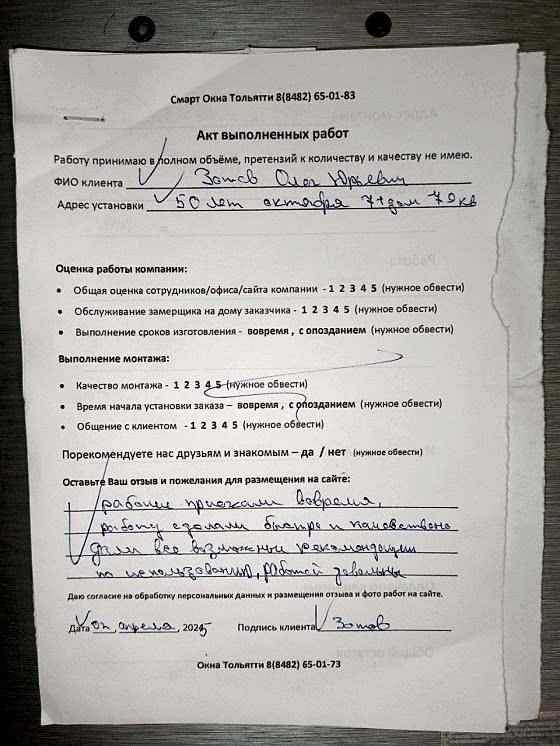 Смарт Окна Тольятти 8(8482) 65-01-83
Акт выполненных работ
Работу принимаю в полном объёме, претензий к количеству и качеству не имею.
ФИО клиента Зотов Олег Юрьевич
Адрес установки 50 лет октября 71 дом 79 кв
Оценка работы компании:
• Общая оценка сотрудников/офиса/сайта компании - 1 2 3 4 5 (нужное обвести)
• Обслуживание замерщика на дому заказчика - 1 2 3 4 5 (нужное обвести)
• Выполнение сроков изготовления - вовремя , с опозданием (нужное обвести)
Выполнение монтажа:
• Качество монтажа - 1 2 3 4 5 (нужное обвести)
• Время начала установки заказа – вовремя , с опозданием (нужное обвести)
• Общение с клиентом - 1 2 3 4 5 (нужное обвести)
Порекомендуете нас друзьям и знакомым – да / нет (нужное обвести)
Оставьте Ваш отзыв и пожелания для размещения на сайте:
рабочие приехали вовремя,
работу сделали быстро и качествено
дали все возможные рекомендации
по использованию, работой довольны
Даю согласие на обработку персональных данных и размещения отзыва и фото работ на сайте.
Дата апреля, 2025 Подпись клиента Зотов
Окна Тольятти 8(8482) 65-01-73